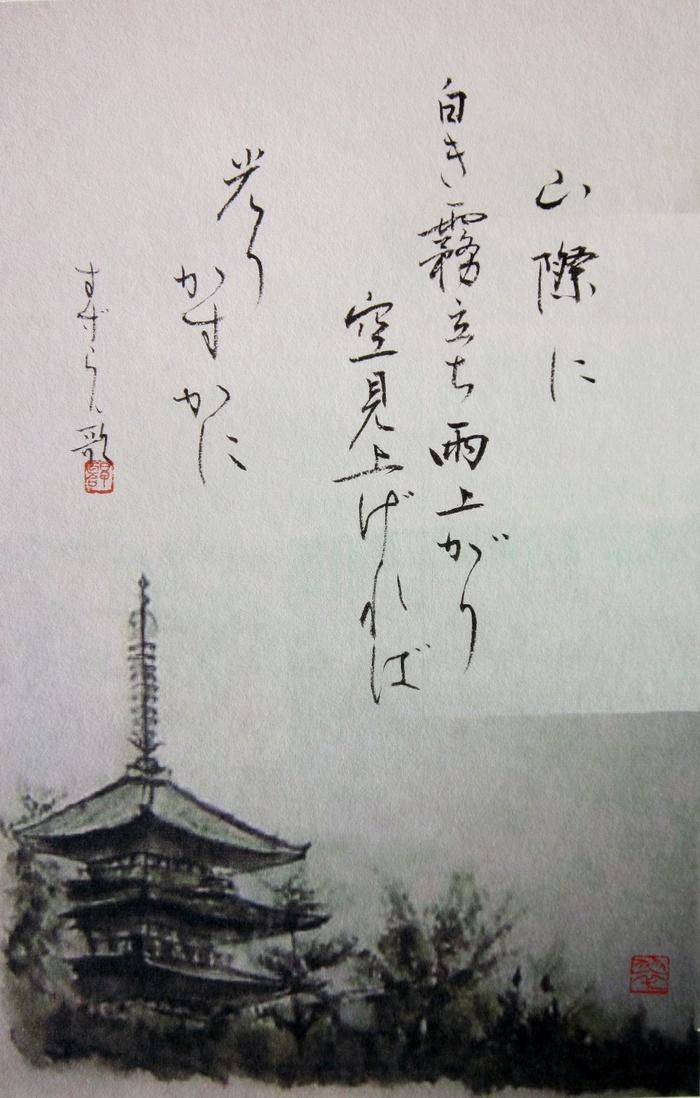 山際に
白き霧立ち雨上がり
空見上げれば
光り
かすかに
すずらん歌